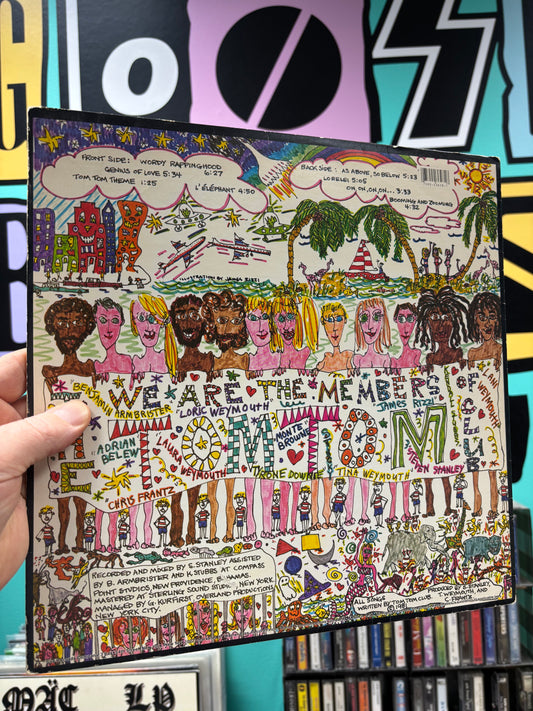 FRONT SIDE: WORDY RAPPINGHOOD 6:27
GENIUS OF LOVE 5:34
TOM TOM THEME 1:25
L'ÉLÉPHANT 4:50
BACK SIDE: AS ABOVE, SO BELOW 5:23
LORELEI 5:05
ON, ON, ON, ON... 3:33
BOOMING AND ZOOMING 4:32
WE ARE THE MEMBERS OF
THE TOM TOM CLUB
BENJAMIN ARMBRISTER
LORIC WEYMOUTH
JAMES RIZZI
WEYMOUTH
ADRIAN BELEW
LAURA WEYMOUTH
MONTE BROWNE
TYRONE DOWNIE
TINA WEYMOUTH
STEVEN STANLEY
CHRIS FRANTZ
RECORDED AND MIXED BY S. STANLEY ASSISTED
BY B. ARMBRISTER AND K. STUBBS AT COMPASS
POINT STUDIOS, NEW PROVIDENCE, BAHAMAS.
MASTERED AT STERLING SOUND STUDIO, NEW YORK
MANAGED BY G. KURFIRST OVERLAND PRODUCTIONS
NEW YORK CITY.
ALL SONGS
WRITTEN BY TOM TOM CLUB
PRODUCED BY S. STANLEY,
T. WEYMOUTH AND
C. FRANTZ
MÄC LP